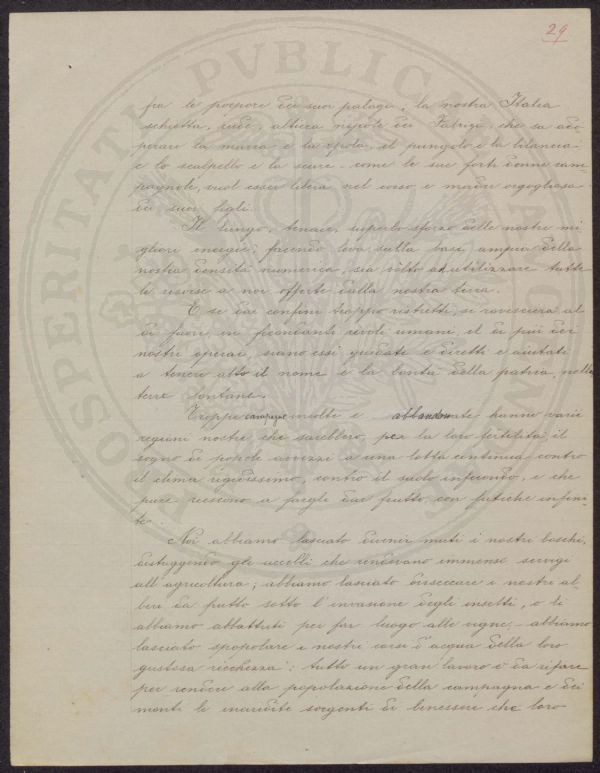 29
fra le porpore dei suoi palagi; la nostra Italia
schietta, rude, altera nipote dei Fabrizi, che sa ado
perare la marra e la spola, il pungolo e la bilancia
e lo scalpello e la scure - come le sue forti donne cam-
pagnole, vuol esser libera nel corso e madre orgogliosa
dei suoi figli.
Il lungo, tenace, superbo sforzo delle nostre mi
gliori energie, facendo leva sulla base ampia della
nostra densità numerica, sia vòlto ad utilizzare tutte
le risorse a noi offerte dalla nostra terra.
E se dai confini troppo ristretti, si rovescierà al
di fuori in fecondanti rivoli umani, il di più dei
nostri operai, siano essi guidati e diretti e aiutati
a tenere alto il nome e la bontà della patria, nelle
terre lontane.
Troppe campagne incolte e abbandonate hanno varie
regioni nostre, che sarebbero, per la loro fertilità il
sogno di popoli avvezzi a una lotta continua contro
il clima rigidissimo, contro il suolo infecondo, e che
pure riescono a fargli dar frutto con fatiche infini-
te.
Noi abbiamo lasciato divenir muti i nostri boschi,
distruggendo gli uccelli che rendevano immensi servigi
all'agricoltura; abbiamo lasciato disseccare i nostri al
beri da frutto sotto l'invasione degli insetti, o li
abbiamo abbattuti per far luogo alle vigne - abbiamo
lasciato spopolare i nostri corsi d'acqua della loro
gustosa ricchezza: tutto un gran lavoro è da rifare
per rendere alla popolazione della campagna e dei
monti le inaridite sorgenti di benessere che loro
PROSPERITATI PVBLICAE